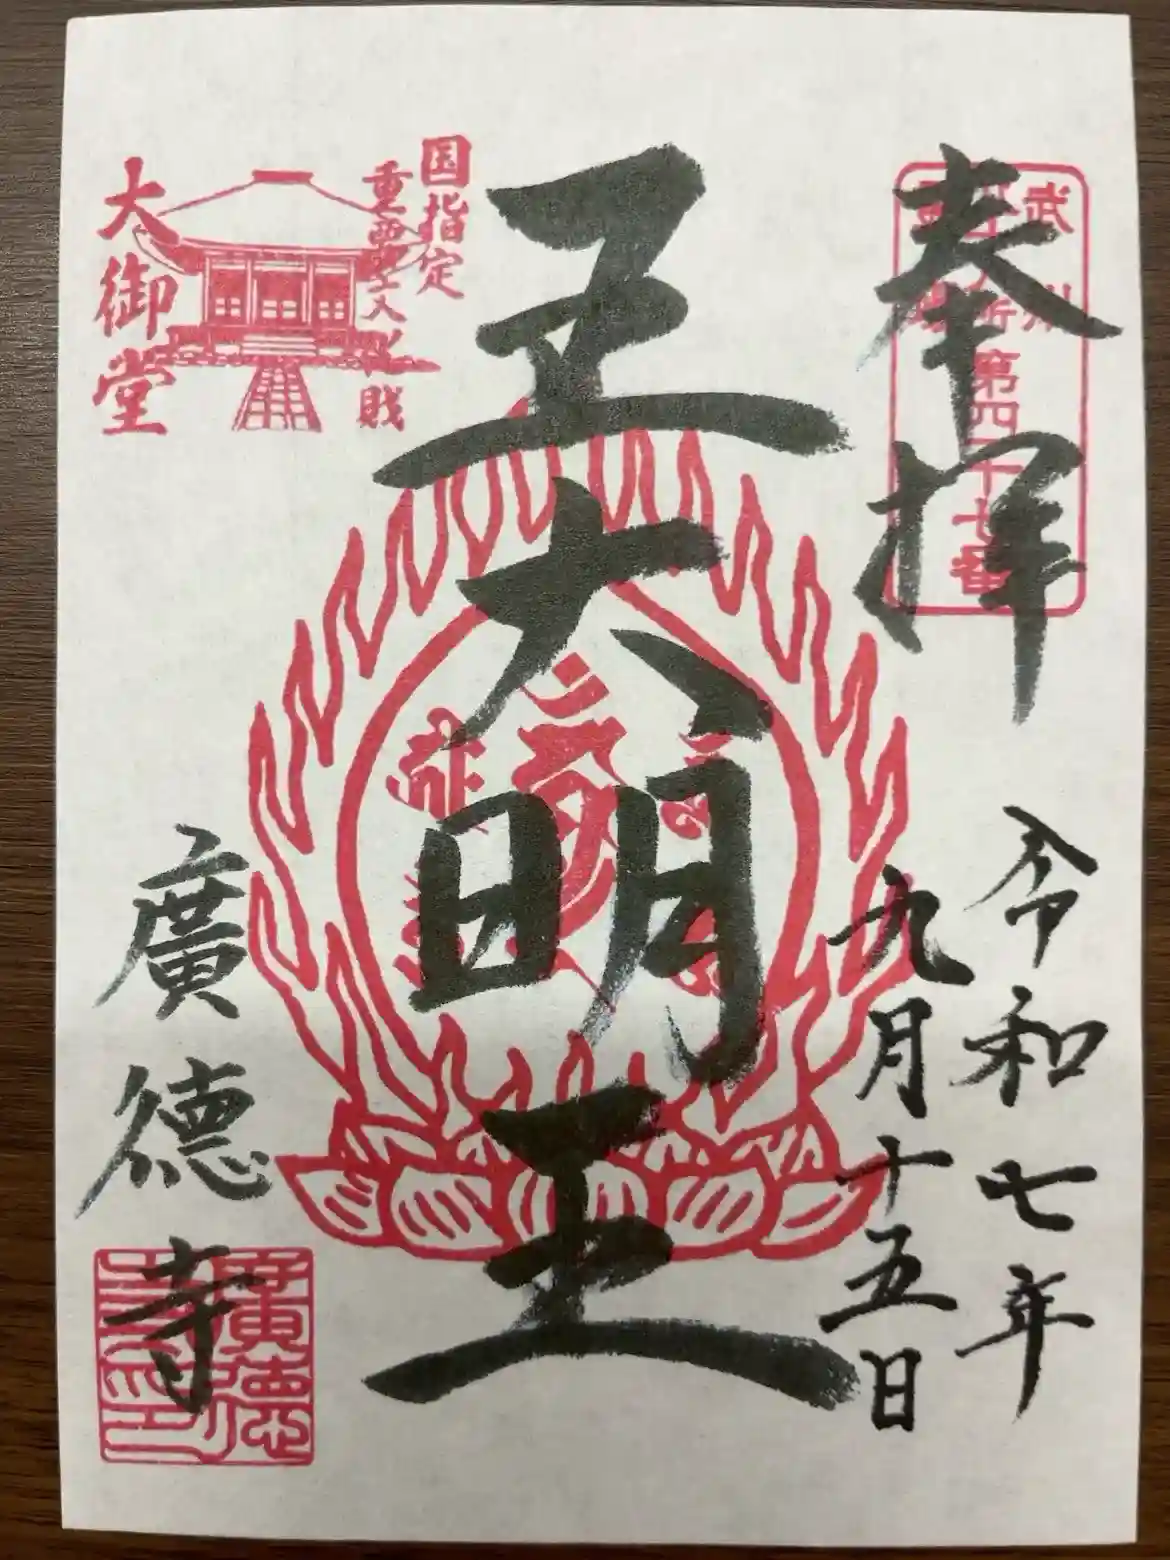 奉拝
武州
第四十七番
令和七年
九月十五日
五大明王
国指定
重要文化財
大御堂
廣徳寺
廣徳